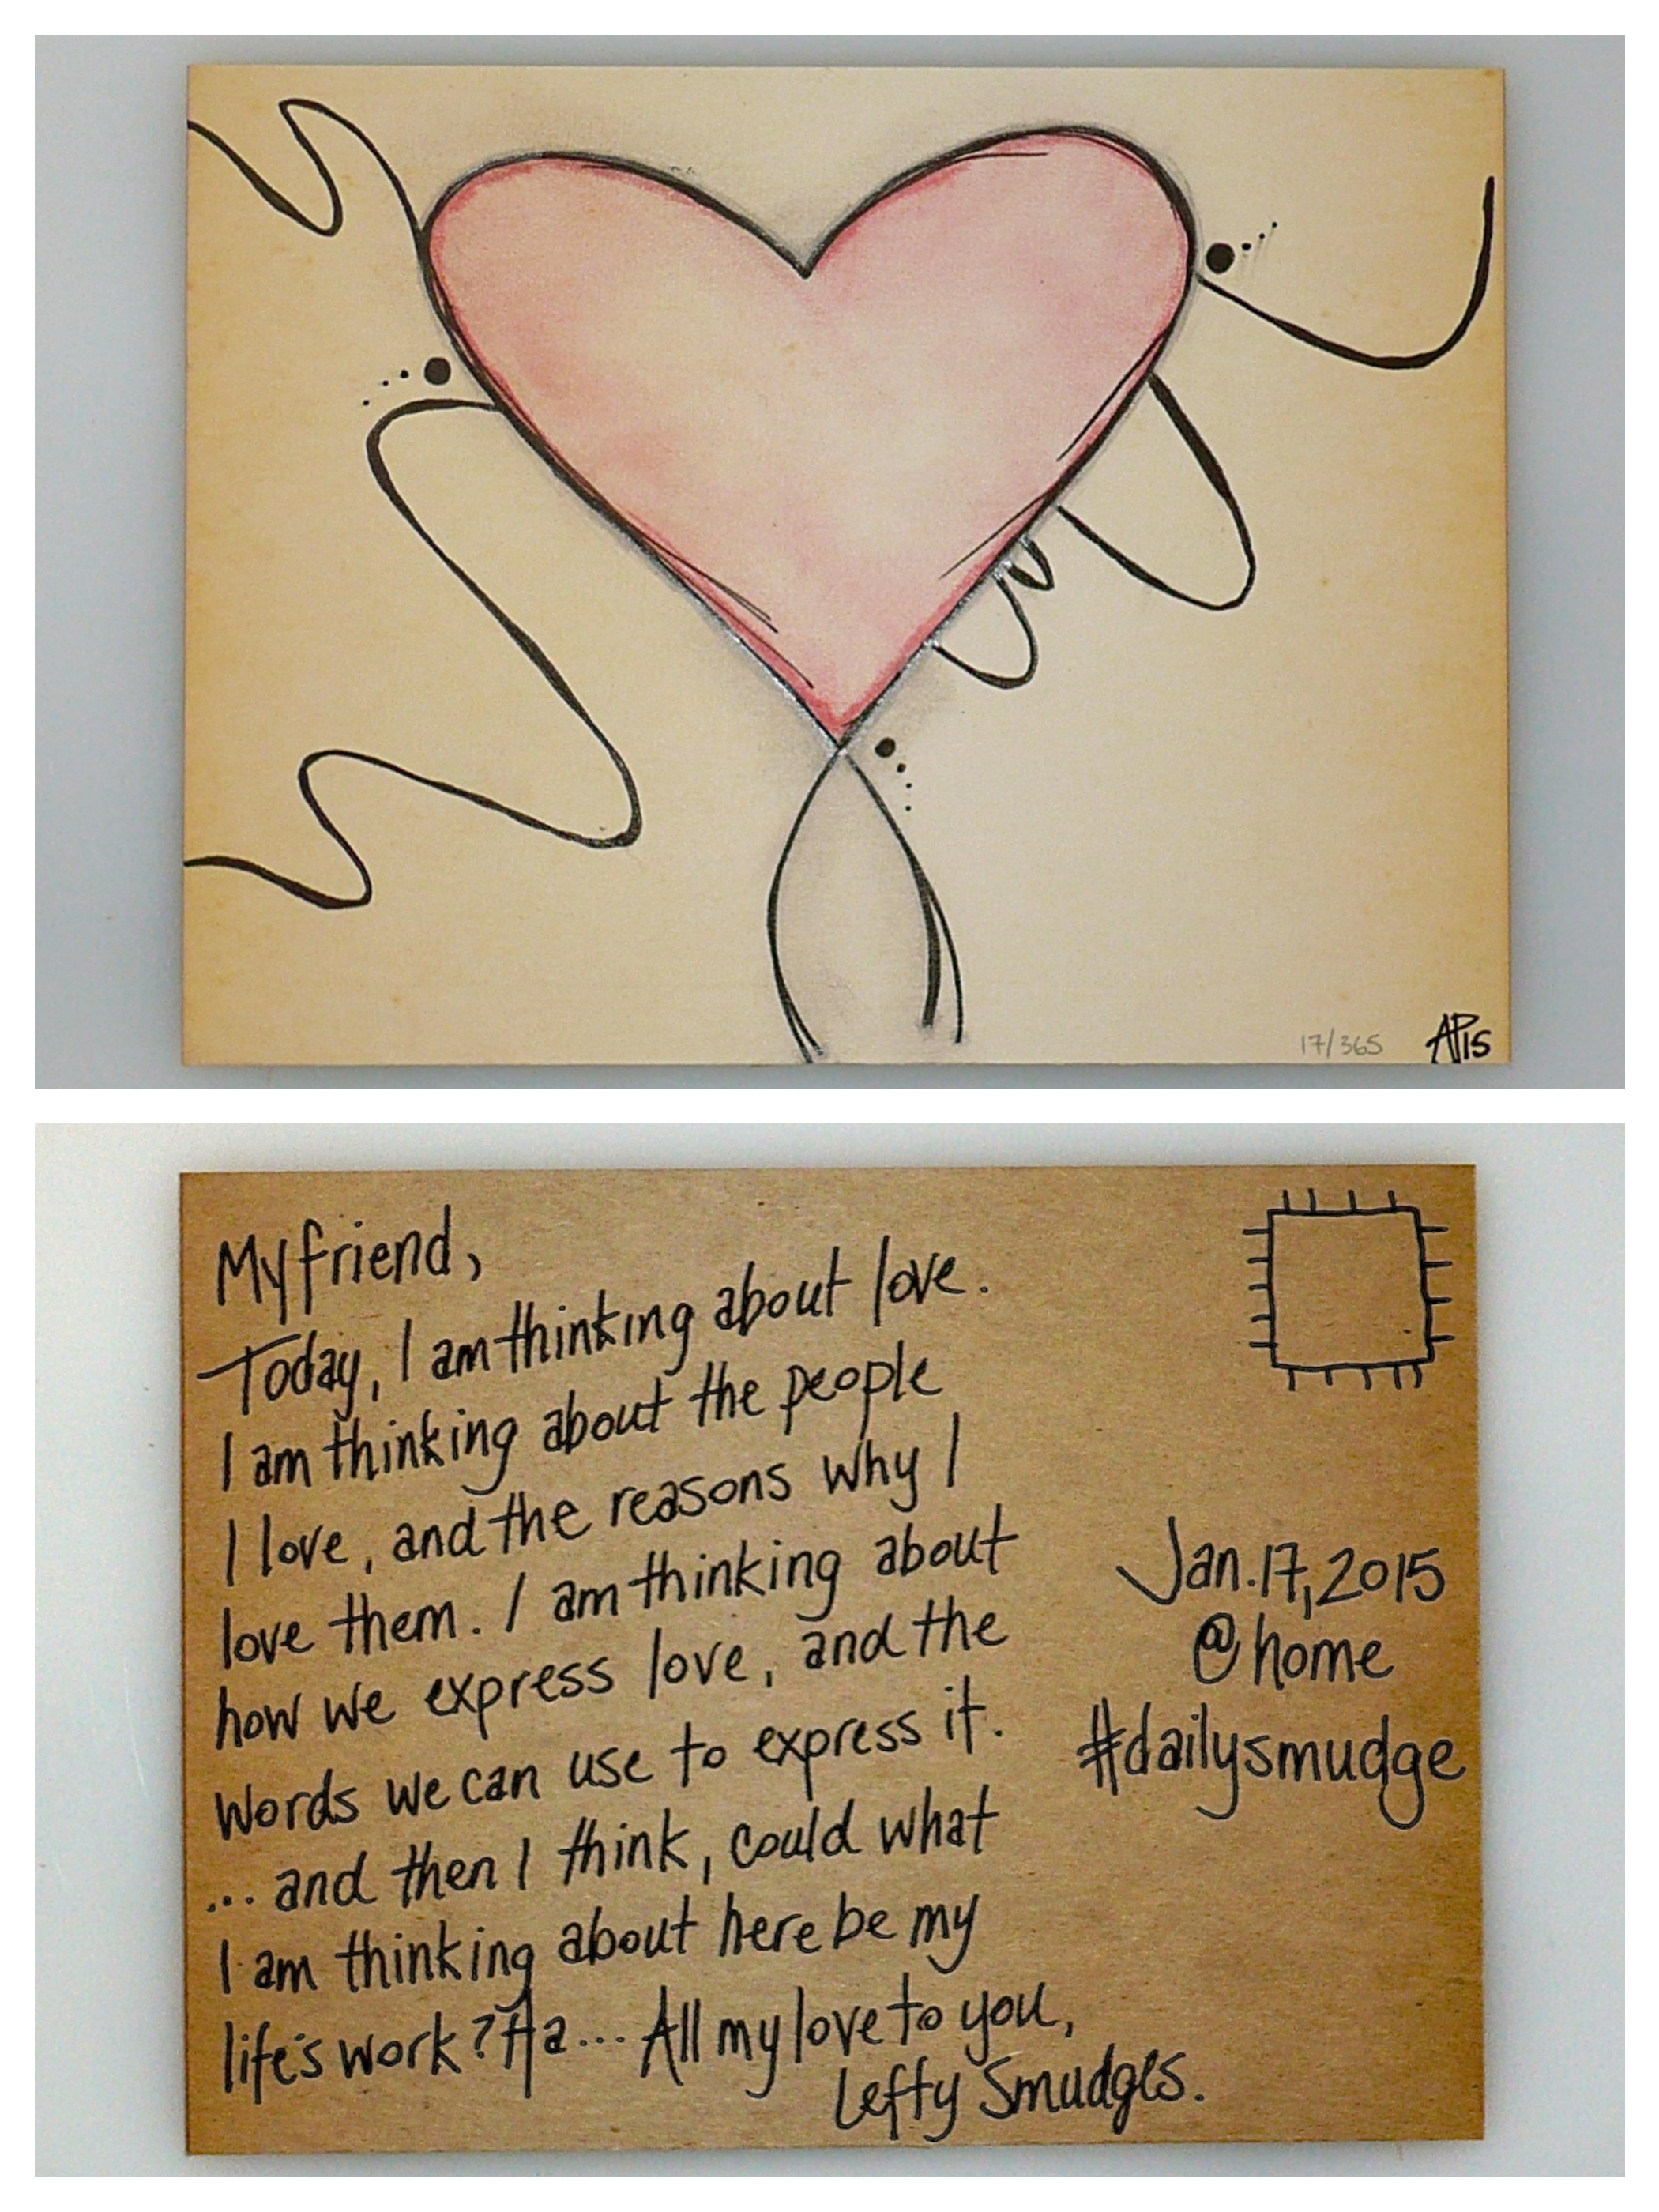 17/365 AP15
My friend,
Today, I am thinking about love.
I am thinking about the people
I love, and the reasons why I
love them. I am thinking about
how we express love, and the
words we can use to express it.
... and then I think, could what
I am thinking about here be my
life's work? Ha... All my love to you,
Lefty Smudges.
Jan. 17, 2015
@home
#dailysmudge